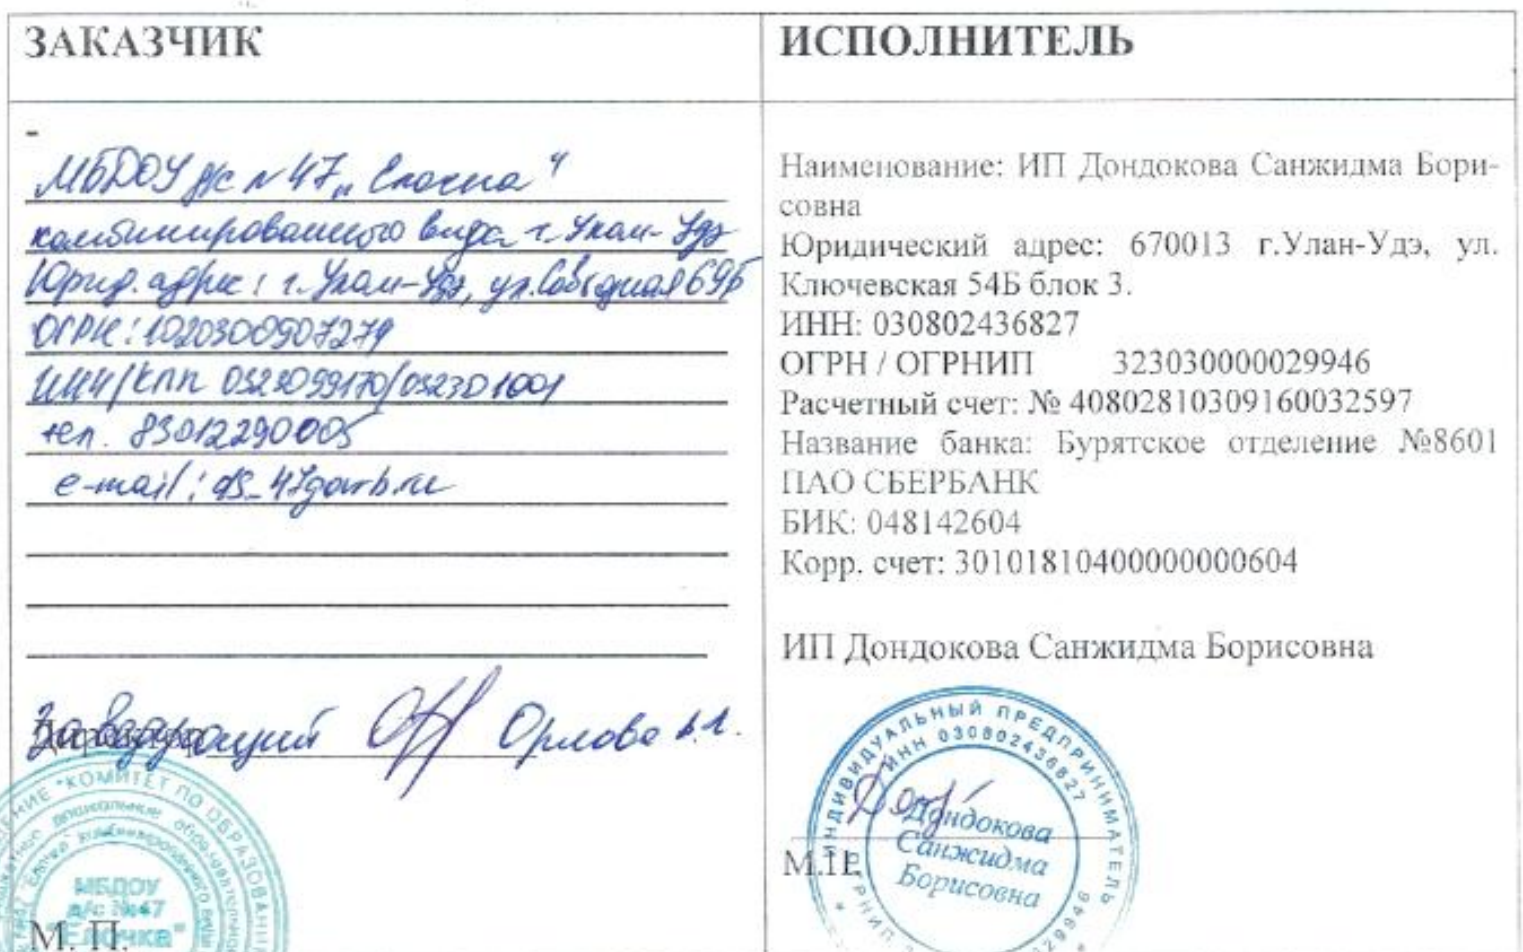 ЗАКАЗЧИК
-
МБДОУ д/с № 47 „Елочка"
комбинированного вида г. Улан-Удэ
Юрид. адрес: г. Улан-Удэ, ул. 69Б
ОГРН: 1020300907279
ИНН/КПП 0323099170/032301001
тел. 83012290005
e-mail: ds_47govrb.ru
Директор
Заведующий Орлова
"КОМИТЕТ ПО ОБРАЗОВАНИЮ
МБДОУ
д/с №47
"Елочка"
М. П.
ИСПОЛНИТЕЛЬ
Наименование: ИП Дондокова Санжидма Бори-
совна
Юридический адрес: 670013 г.Улан-Удэ, ул.
Ключевская 54Б блок 3.
ИНН: 030802436827
ОГРН / ОГРНИП 323030000029946
Расчетный счет: № 40802810309160032597
Название банка: Бурятское отделение №8601
ПАО СБЕРБАНК
БИК: 048142604
Корр. счет: 30101810400000000604
ИП Дондокова Санжидма Борисовна
ИНДИВИДУАЛЬНЫЙ ПРЕДПРИНИМАТЕЛЬ
ИНН 030802436827
Дондокова
Санжидма
Борисовна
М.П.